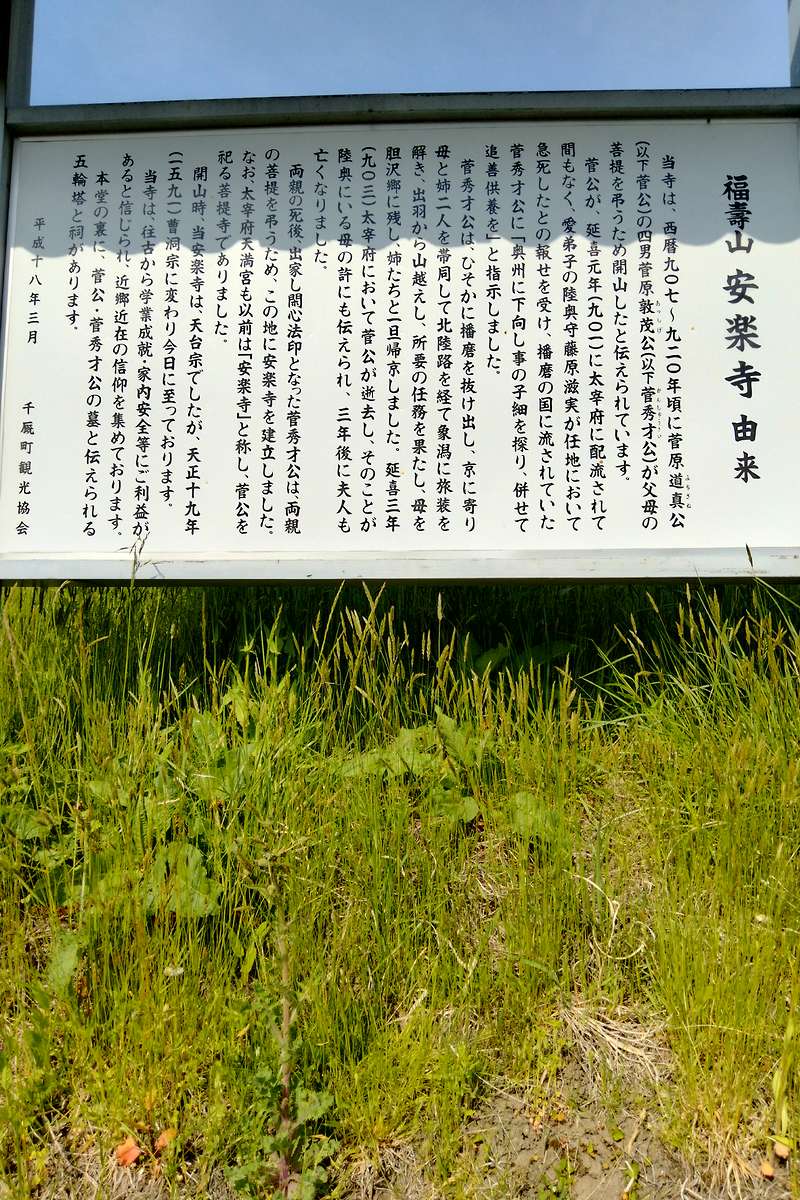 福壽山 安楽寺 由来
当寺は、西暦九〇七～九二〇年頃に菅原道真公
(以下菅公)の四男菅原敦茂公(以下菅秀才公)が父母の
菩提を弔うため開山したと伝えられています。
菅公が、延喜元年(九〇一)に太宰府に配流されて
間もなく、愛弟子の陸奥守藤原滋実が任地において
急死したとの報せを受け、播磨の国に流されていた
菅秀才公に「奥州に下向し事の子細を探り、併せて
追善供養を」と指示しました。
菅秀才公は、ひそかに播磨を抜け出し、京に寄り
母と姉二人を帯同して北陸路を経て象潟に旅装を
解き、出羽から山越えし、所要の任務を果たし、母を
胆沢郷に残し、姉たちと一旦帰京しました。延喜三年
(九〇三)太宰府において菅公が逝去し、そのことが
陸奥にいる母の許にも伝えられ、三年後に夫人も
亡くなりました。
両親の死後、出家し開心法印となった菅秀才公は、両親
の菩提を弔うため、この地に安楽寺を建立しました。
なお、太宰府天満宮も以前は「安楽寺」と称し、菅公を
祀る菩提寺でありました。
開山時、当安楽寺は、天台宗でしたが、天正十九年
(一五九一)曹洞宗に変わり今日に至っております。
当寺は、往古から学業成就・家内安全等にご利益が
あると信じられ、近郷近在の信仰を集めております。
本堂の裏に、菅公・菅秀才公の墓と伝えられる
五輪塔と祠があります。
平成十八年三月 千厩町観光協会